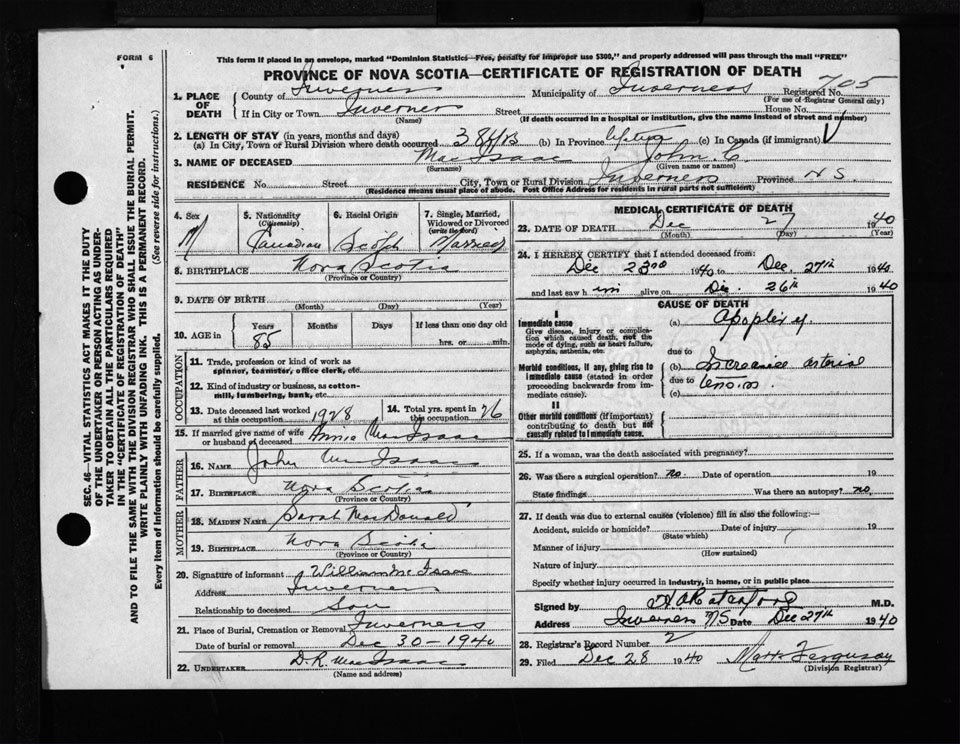 FORM 6
This form if placed in an envelope, marked "Dominion Statistics—Free, penalty for improper use $300," and properly addressed will pass through the mail "FREE"
PROVINCE OF NOVA SCOTIA—CERTIFICATE OF REGISTRATION OF DEATH
1. PLACE OF DEATH
County of Inverness Municipality of Inverness Registered No. 705
(For use of Registrar General only)
If in City or Town Inverness Street House No.
(Name) (If death occurred in a hospital or institution, give the name instead of street and number)
2. LENGTH OF STAY (in years, months and days)
(a) In City, Town or Rural Division where death occurred 38 yrs (b) In Province lifetime (c) In Canada (if immigrant)
3. NAME OF DECEASED MacIsaac John C.
(Surname) (Given name or names)
RESIDENCE No. Street City, Town or Rural Division Inverness Province N S.
(Residence means usual place of abode. Post Office Address for residents in rural parts not sufficient)
4. Sex M
5. Nationality (Citizenship) Canadian
6. Racial Origin Scotch
7. Single, Married, Widowed or Divorced (write the word) Married
8. BIRTHPLACE Nova Scotia
(Province or Country)
9. DATE OF BIRTH
(Month) (Day) (Year)
10. AGE in Years 85 Months Days If less than one day old hrs. or min.
OCCUPATION
11. Trade, profession or kind of work as spinner, teamster, office clerk, etc.
12. Kind of industry or business, as cotton-mill, lumbering, bank, etc.
13. Date deceased last worked at this occupation 1928
14. Total yrs. spent in this occupation 26
15. If married give name of wife or husband of deceased Annie MacIsaac
FATHER
16. NAME John Mc Isaac
17. BIRTHPLACE Nova Scotia
(Province or Country)
MOTHER
18. MAIDEN NAME Sarah MacDonald
19. BIRTHPLACE Nova Scotia
(Province or Country)
20. Signature of informant William Mc Isaac
Address Inverness
Relationship to deceased Son
21. Place of Burial, Cremation or Removal Inverness
Date of burial or removal Dec 30 - 1940
22. UNDERTAKER D.R. MacIsaac
(Name and address)
MEDICAL CERTIFICATE OF DEATH
23. DATE OF DEATH Dec 27 1940
(Month) (Day) (Year)
24. I HEREBY CERTIFY that I attended deceased from:
Dec 23rd 1940 to Dec. 27th 1940
and last saw him alive on Dec. 26th 1940
CAUSE OF DEATH
I
Immediate cause
Give disease, injury or complication which caused death, not the mode of dying, such as heart failure, asphyxia, asthenia, etc.
(a) Apoplexy.
due to
Morbid conditions, if any, giving rise to immediate cause (stated in order proceeding backwards from immediate cause).
(b) Increasive arterial
due to tension.
(c)
II
Other morbid conditions (if important) contributing to death but not causally related to immediate cause.
25. If a woman, was the death associated with pregnancy?
26. Was there a surgical operation? no. Date of operation 19
State findings Was there an autopsy? no.
27. If death was due to external causes (violence) fill in also the following:—
Accident, suicide or homicide? Date of injury 19
(State which)
Manner of injury
(How sustained)
Nature of injury
Specify whether injury occurred in industry, in home, or in public place
Signed by M.D.
Address Inverness N.S. Date Dec 27th 1940
28. Registrar's Record Number 2
29. Filed Dec 28 1940 Ferguson
(Division Registrar)
SEC. 46—VITAL STATISTICS ACT MAKES IT THE DUTY
OF THE UNDERTAKER OR PERSON ACTING AS UNDER-
TAKER TO OBTAIN ALL THE PARTICULARS REQUIRED
IN THE "CERTIFICATE OF REGISTRATION OF DEATH"
AND TO FILE THE SAME WITH THE DIVISION REGISTRAR WHO SHALL ISSUE THE BURIAL PERMIT.
WRITE PLAINLY WITH UNFADING INK. THIS IS A PERMANENT RECORD.
Every item of information should be carefully supplied. (See reverse side for instructions.)